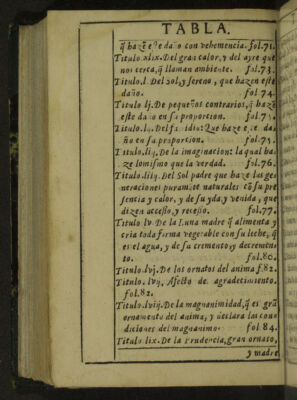 TABLA.
q̃ hazẽ este daño con vehemencia. fol.71.
Titulo.xlix. Del gran calor, y del ayre que
nos cerca, q̃ llaman ambiente. fol.73.
Titulo.l. Del Sol, y sereno, que hazen este
daño. fol 74.
Titulo lj. De pequeños contrarios, q̃ hazẽ
este daño en su proporcion. fol.75.
Titulo.lij. Del fastidio: Que haze este da
ño en su proporcion. fol.75.
Titulo.liij. De la imaginacion: la qual ha-
ze lo mismo que la verdad. fol.76.
Titulo.liiij. Del Sol padre que haze las ge
neraciones puramẽte naturales cõ su pre
sencia y calor, y de su yda y venida, que
dizen accesso, y recesso. fol.77.
Titulo lv. De la Luna madre q̃ alimenta y
cria toda forma vegetable con su leche, q̃
es el agua, y de su cremento y decremen-
to. fol.80.
Titulo.lvj. De los ornatos del anima f.82.
Titulo.lvij. Afecto de agradecimiento.
fol.82.
Titulo.lviij. De la magnanimidad, q̃ es grã
ornamento del anima, y declara las con
diciones del magnanimo. fol.84.
Titulo lix. De la Prudencia, gran ornato,
y madre